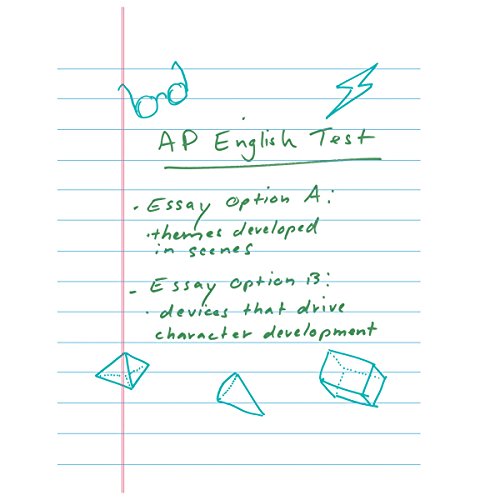 AP English Test
· Essay Option A:
· themes developed
in scenes
- Essay Option B:
· devices that drive
character development